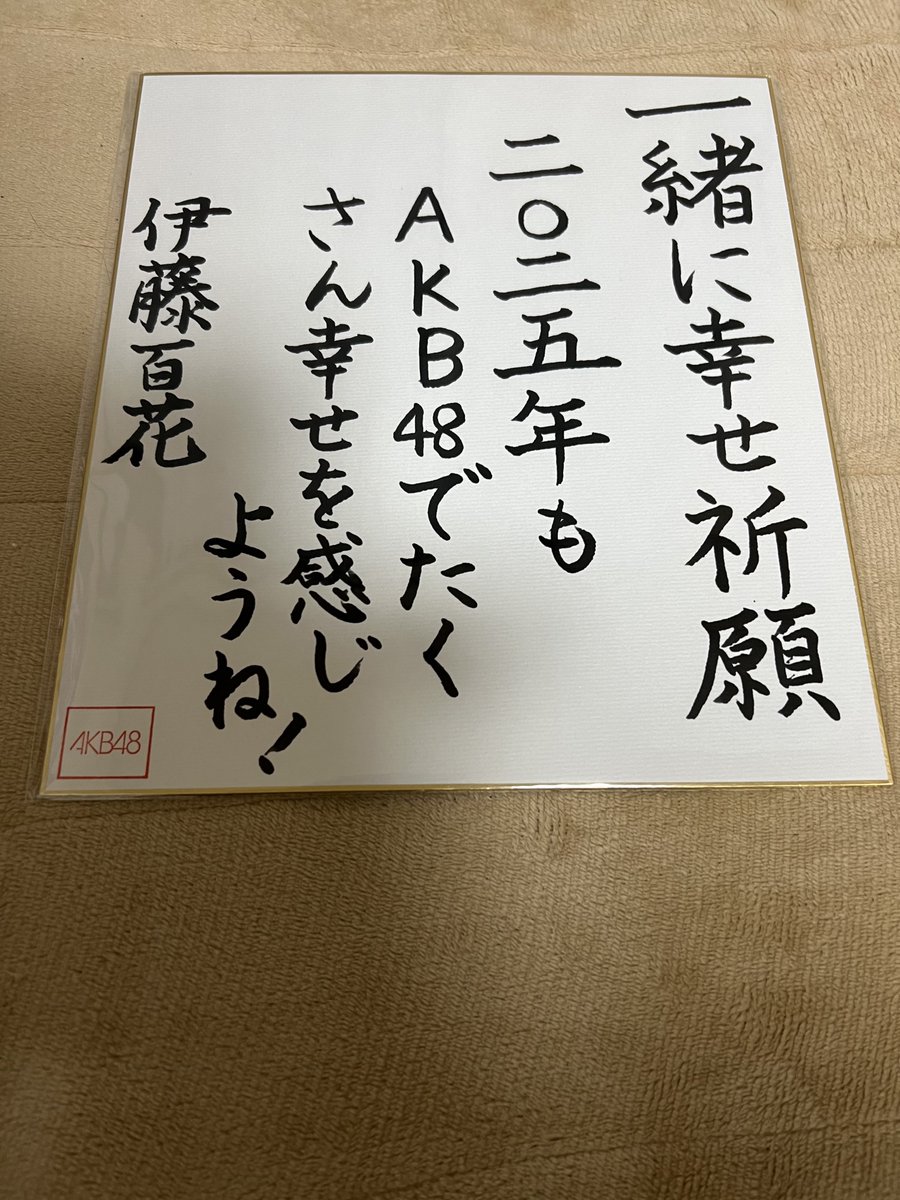 一緒に幸せ祈願
二〇二五年も
AKB48でたく
さん幸せを感じ
ようね!
伊藤百花
AKB48